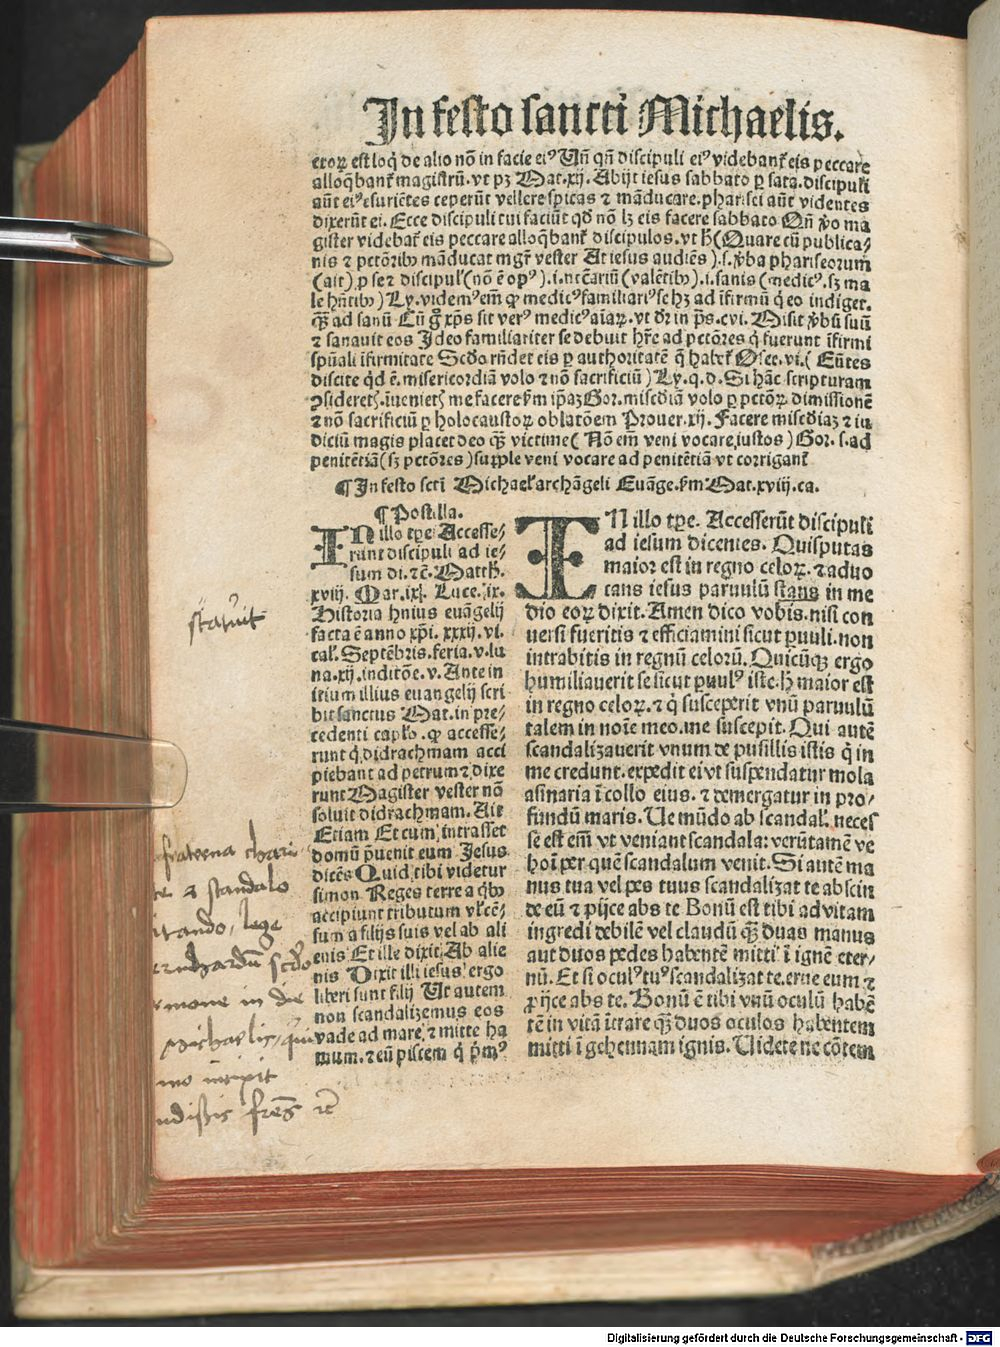 In festo sancti Michaelis.
eorꝝ est loq̄ de alio nō in facie eiꝰ Vn̄ qn̄ discipuli eiꝰ videbant̄ eis peccare
alloq̄bant̄ magistrū. vt pꝫ Mat. xij. Abijt iesus sabbato ꝑ sata. discipuli
aūt eiꝰ esuriētes ceperūt vellere spicas ⁊ māducare. pharisei aūt videntes
dixerūt ei. Ecce discipuli tui faciūt qd̄ nō lꝫ eis facere sabbato Qn̄ v̄o ma
gister videbat̄ eis peccare alloq̄bant̄ discipulos. vt h̄ (Quare cū publica⸗
nis ⁊ pctōribꝰ māducat mgr̄ vester At iesus audiēs) .s. v̄ba phariseorum
(ait) ꝓ se ⁊ discipul̄ (nō ē opꝰ) .i. necāriū (valētibꝰ) .i. sanis (medicꝰ. sꝫ ma
le hn̄tibꝰ) Ly. videmꝰ em̄ ꝙ medicꝰ familiariꝰ se hꝫ ad īfirmū q̄ eo indiget.
qꝫ̄ ad sanū Cū g̊ xp̄s sit verꝰ medicꝰ aīaꝝ. vt dr̄ in ps̄. cvi. Misit v̄bū suū
⁊ sanauit eos Ideo familiariter se debuit hr̄e ad pctōres q̄ fuerunt īfirmi
spūali īfirmitate Scd̄o rn̄det eis ꝑ authoritatē q̄ habet̄ Osee. vi. (Eūtes
discite qd̄ ē. misericordiā volo ⁊ nō sacrificiū) Ly. q. d. Si hāc scripturam
ꝯsideret͛. īueniet͛ me facere ẜm ip̄aꝫ Gor. misc̄diā volo ꝑ pctōꝝ dimissionē
⁊ nō sacrificiū ꝑ holocaustoꝝ oblatōem Prouer. xij. Facere misc̄diaꝫ ⁊ iu
diciū magis placet deo qꝫ̄ victime (Nō em̄ veni vocare iustos) Gor. s. ad
penitētiā (sꝫ pctōres) supple veni vocare ad penitētiā vt corrigant̄
¶ In festo scti Michael̄ archāgeli Euāge. ẜm Mat. xviij. ca.
¶ Postilla.
IN illo tꝑe Accesse⸗
runt discipuli ad ie⸗
sum di. ⁊c̄. Matth̄.
xviij. Mar. ix. Luce. ix.
Historia hꝰius euāgelij
facta ē anno xp̄i. xxxij. vi.
cal̄. Septēbris. feria. v. lu
na. xij. inditōe. v. Ante in
itium illius euangelij scri
bit sanctus Mat. in pre⸗
cedenti caplo. ꝙ accesse⸗
runt q̄ didrachmam acci
piebant ad petrum ⁊ dixe
runt Magister vester nō
soluit didrachmam. Ait
Etiam Et cum intrasset
domū p̄uenit eum Jesus
dicēs Quid tibi videtur
simon Reges terre a q̄bꝰ
accipiunt tributum vl̄ cē⸗
sum a filijs suis vel ab ali
enis Et ille dixit Ab alie
nis Dixit illi iesus ergo
liberi sunt filij Ut autem
non scandalizemus eos
vade ad mare ⁊ mitte ha
mum. ⁊ eū piscem q̄ p̄mꝰ
IN illo tꝑe. Accesserūt discipuli
ad iesum dicentes. Quis putas
maior est in regno celoꝝ. ⁊ aduo
cans iesus paruulū stans in me
dio eoꝝ dixit. Amen dico vobis. nisi con
uersi fueritis ⁊ efficiamini sicut ꝑuuli. non
intrabitis in regnū celorū. Quicūqꝫ ergo
humiliauerit se sicut ꝑuulꝰ iste. h̄ maior est
in regno celoꝝ. ⁊ q̄ susceperit vnū paruulū
talem in noīe meo. me suscepit. Qui autē
scandalizauerit vnum de pusillis istis q̄ in
me credunt. expedit ei vt suspendatur mola
asinaria ī collo eius. ⁊ demergatur in pro⸗
fundū maris. Ue mūdo ab scandal̄. neces
se est em̄ vt veniant scandala: verūtamē ve
hoī per quē scandalum venit. Si autē ma
nus tua vel pes tuus scandalizat te abscin
de eū ⁊ ꝓijce abs te Bonū est tibi ad vitam
ingredi debilē vel claudū qꝫ̄ duas manus
aut duos pedes habentē mitti ī ignē eter⸗
nū. Et si oculꝰ tuꝰ scandalizat te. erue eum ⁊
ꝓijce abs te. Bonū ē tibi vnū oculū habē
tē in vitā ītrare qꝫ̄ duos oculos habentem
mitti ī gehennam ignis. Uidete ne cōtem
statuit
fraterna chari
te ⁊ scandalo
itando, lege
ernhardū scd̄o
rmone in die
Michaelis, qui
mo incipit
ndistis fres̄ ⁊c
Digitalisierung gefördert durch die Deutsche Forschungsgemeinschaft - DFG